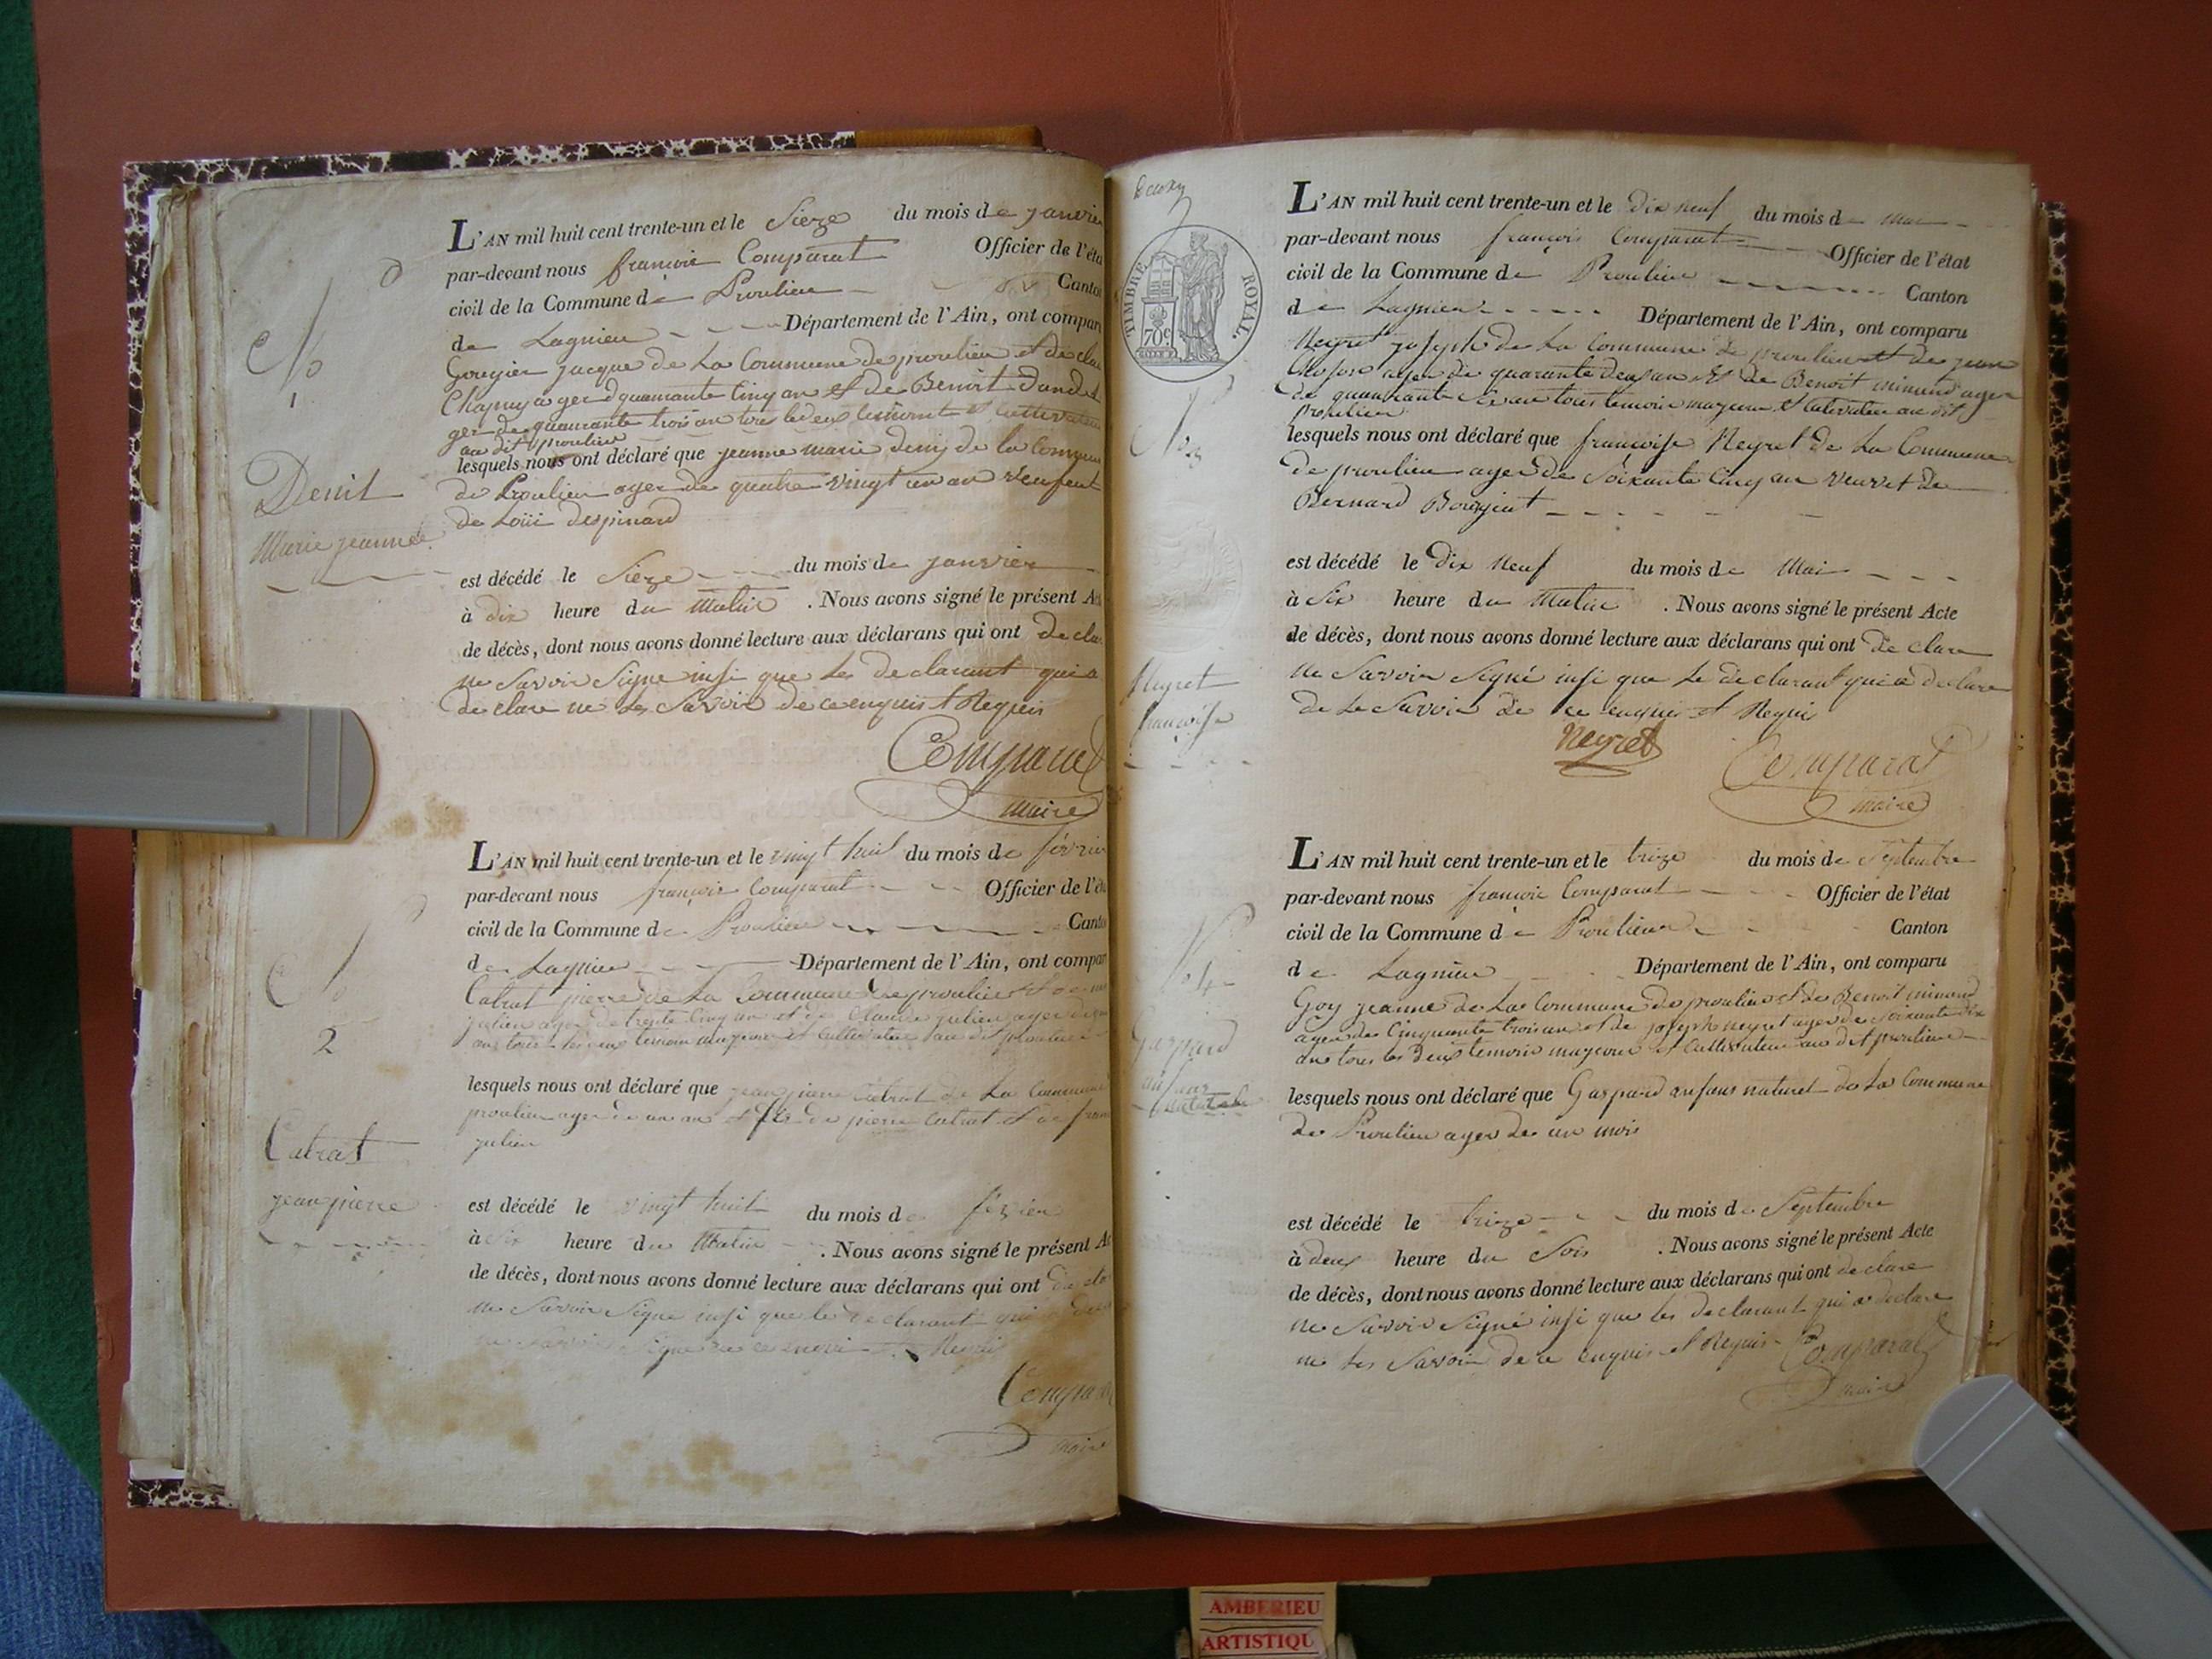 L'AN mil huit cent trente-un et le Sieze du mois de janvier
par-devant nous françois Comparat Officier de l'éta
civil de la Commune de Proulieu Canton
de Lagnieu Département de l'Ain, ont compar
jacque de La Commune de proulieu et de
ager d quarante Cinq an et de Benoit
ger de quarante trois an tous les deux temoins et cultivateur
au dit proulieu
lesquels nous ont déclaré que jeanne marie denis de la Commune
de Proulieu ager de quatre vingt un an
de Loüi despinard
est décédé le Sieze du mois de janvier
à dix heure du Matin . Nous avons signé le présent Ac
de décès, dont nous avons donné lecture aux déclarans qui ont decla
ne Savoir Signe insi que les declarant qui a
declare ne Les Savoir de ce enquis et Requis
Comparat
maire
1
Denit
Marie jeanne
L'AN mil huit cent trente-un et le vingt huit du mois de février
par-devant nous françois Comparat Officier de l'éta
civil de la Commune de Proulieu Canton
de Lagnieu Département de l'Ain, ont compar
Catrat pierre de La Commune de proulieu
julien ager de trente Cinq an et de Claude julien ager de
temoin majeur et Cultivateur au dit proulieu
lesquels nous ont déclaré que jean pierre Catrat de La Commune
proulieu ager de un an et fils de pierre Catrat et de
julien
est décédé le vingt huit du mois de février
à Six heure du Matin . Nous avons signé le présent Ac
de décès, dont nous avons donné lecture aux déclarans qui ont
ne Savoir Signe insi que les declarant qui a
Comparat
maire
2
Catrat
jean pierre
TIMBRE ROYAL
70c
L'AN mil huit cent trente-un et le dix neuf du mois de mai
par-devant nous françois Comparat Officier de l'état
civil de la Commune de Proulieu Canton
de Lagnieu Département de l'Ain, ont comparu
Neyret joseph de La Commune de proulieu et de
ager de quarante deux an et de Benoit minond ager
de quarante an tous temoin majeur et Cultivateur au dit
proulieu
lesquels nous ont déclaré que françoise Neyret de La Commune
de proulieu ager de Soixante Cinq an veuve de
Bernard
est décédé le Dix Neuf du mois de Mai
à Six heure du Matin . Nous avons signé le présent Acte
de décès, dont nous avons donné lecture aux déclarans qui ont de clare
ne Savoir Signé insi que le declarant qui a declare
de Le Savoir de ce enquis et Requis
Neyret
Comparat
maire
3
Neyret
françoise
L'AN mil huit cent trente-un et le trieze du mois de Septembre
par-devant nous françois Comparat Officier de l'état
civil de la Commune de Proulieu Canton
de Lagnieu Département de l'Ain, ont comparu
Goy jeanne de La Commune de proulieu et de Benoit minond
ager de Cinquante trois an et de joseph neyret ager de Soixante dix
ans tous les deux temoin majeur et Cultivateur au dit proulieu
lesquels nous ont déclaré que Gaspard anfans naturel de La Commune
de Proulieu ager de un mois
est décédé le trieze du mois de Septembre
à deux heure du Soir . Nous avons signé le présent Acte
de décès, dont nous avons donné lecture aux déclarans qui ont declare
ne Savoir Signé insi que les declarant qui a declare
ne Les Savoir de ce enquis et Requis Comparat
maire
4
Gaspard
anfans
naturel
AMBERIEU
ARTISTIQU